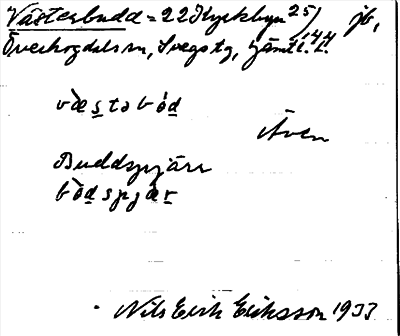 Västerbudd = 22 Kyrkbyn 25/144 jb,
Överhogdals sn, Svegs tg, Jämtl. l.
væstabòd
Även
Buddspjärr
bòdspjær
Nils Erik Eriksson 1933